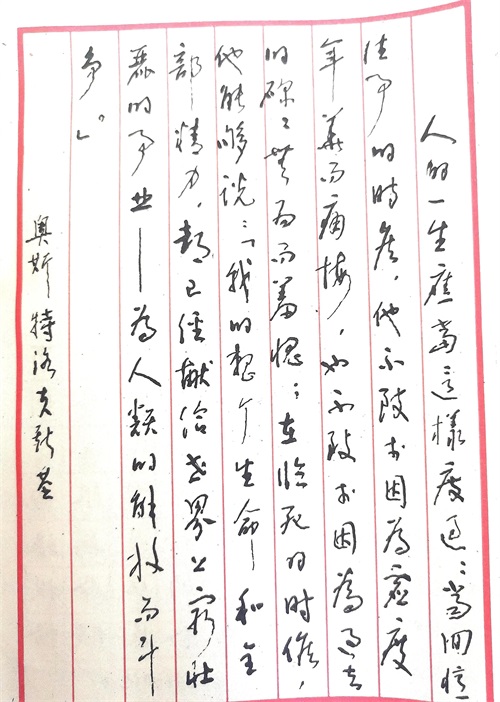 人的一生應當這樣度過：當回憶
往事的時候，他不致于因為虛度
年華而痛悔，也不致于因為過去
的碌々無為而羞愧；在臨死的時候，
他能够说：「我的整个生命和全
部精力，都已經献给世界上最壯
麗的事业——為人類的解放而斗
争。」
奥斯特洛夫斯基